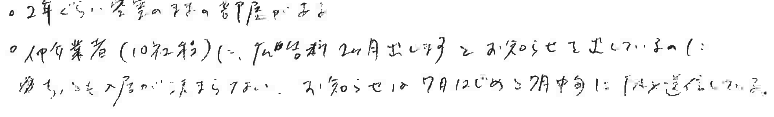 。2年ぐらい空室のままの部屋がある
。仲介業者(10社程)に、広告料2ヶ月出しますとお知らせを出しているのに
入居が決まらない、お知らせは7月はじめと7月中旬にFAX送信している。